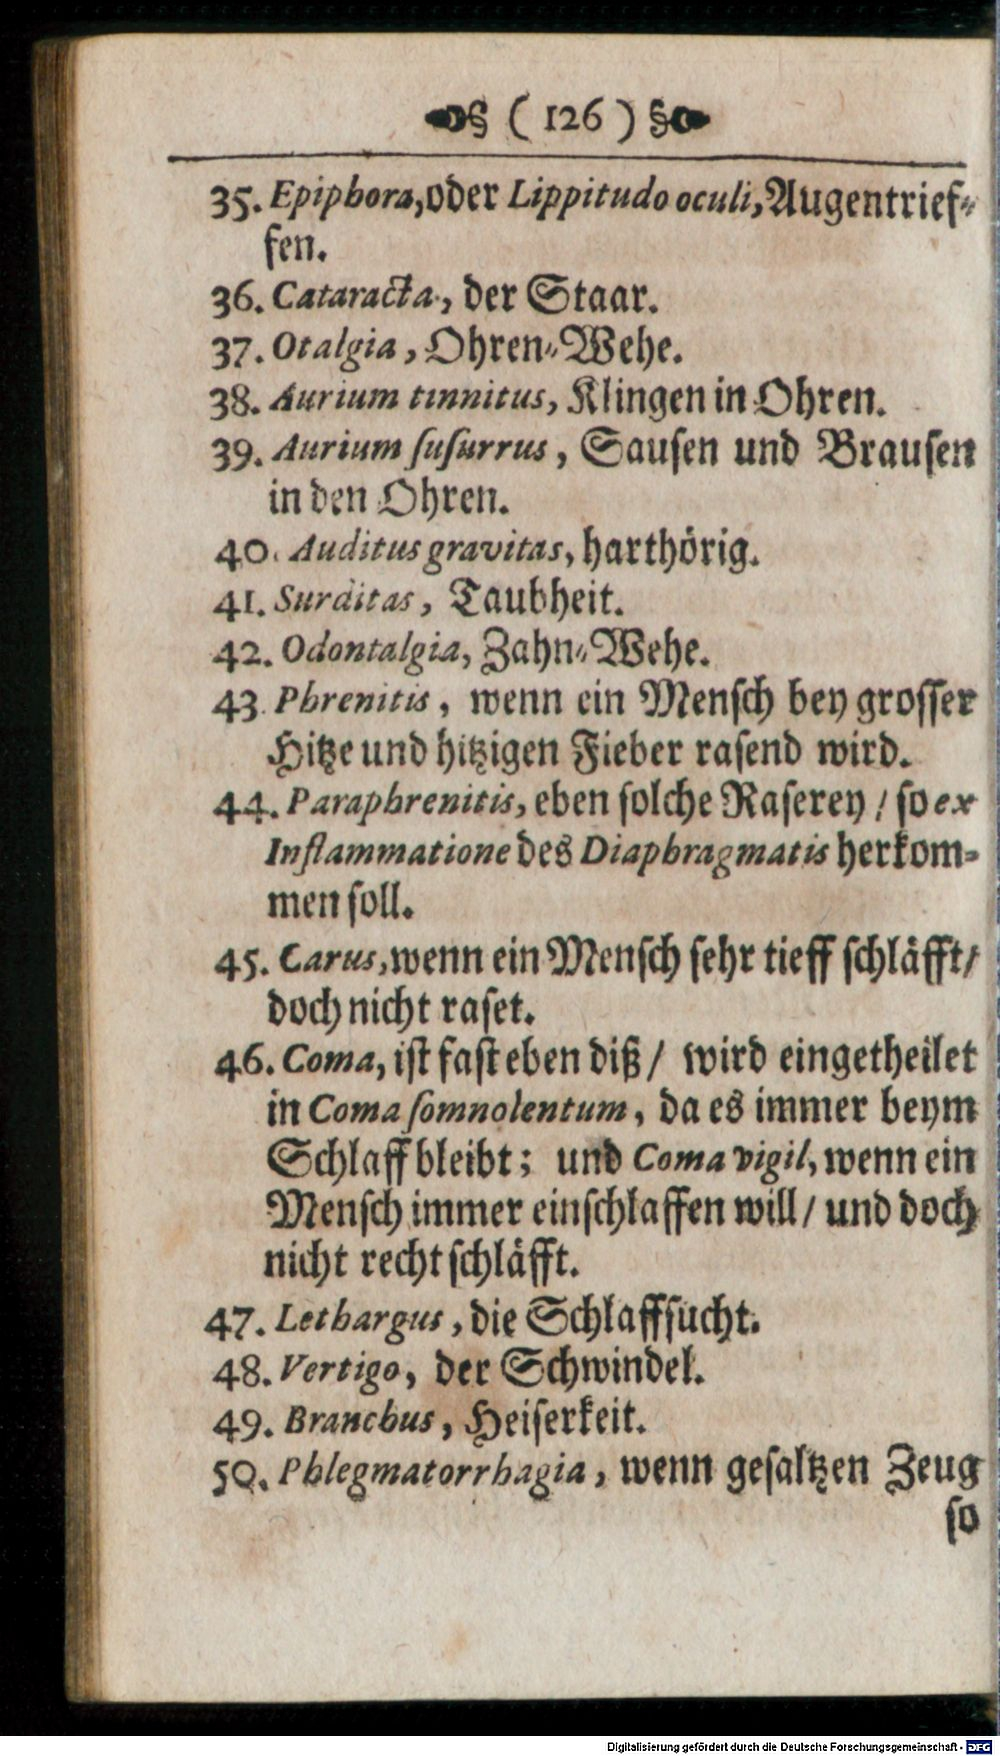 § ( 126 ) §
35. Epiphora, oder Lippitudo oculi, Augentrief-
fen.
36. Cataracta, der Staar.
37. Otalgia, Ohren-Wehe.
38. Aurium tinnitus, Klingen in Ohren.
39. Aurium ſuſurrus, Sauſen und Brauſen
in den Ohren.
40. Auditus gravitas, harthörig.
41. Surditas, Taubheit.
42. Odontalgia, Zahn-Wehe.
43. Phrenitis, wenn ein Menſch bey groſſer
Hitze und hitzigen Fieber raſend wird.
44. Paraphrenitis, eben ſolche Raſerey / ſo ex
Inflammatione des Diaphragmatis herkom-
men ſoll.
45. Carus, wenn ein Menſch ſehr tieff ſchläfft /
doch nicht raſet.
46. Coma, iſt faſt eben diß / wird eingetheilet
in Coma ſomnolentum, da es immer beym
Schlaff bleibt; und Coma vigil, wenn ein
Menſch immer einſchlaffen will / und doch
nicht recht ſchläfft.
47. Lethargus, die Schlaffſucht.
48. Vertigo, der Schwindel.
49. Branchus, Heiſerkeit.
50. Phlegmatorrhagia, wenn geſaltzen Zeug
ſo
Digitalisierung gefördert durch die Deutsche Forschungsgemeinschaft - DFG